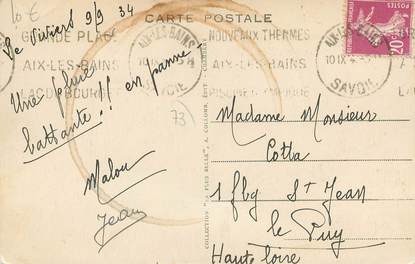 10 €
Le Viviers 9/9 34
CARTE POSTALE
GRANDE PLAGE
AIX-LES-BAINS
LAC DU BOURGET
AIX-LES-BAINS
SAVOIE
NOUVEAUX THERMES
AIX-LES-BAINS
AIX-LES-BAINS
10 IX
SAVOIE
POSTES
20c
Une pluie
battante !! en panne
Malou
Jean
73
Madame Monsieur
Cotta
1 fbg St Jean
le Puy
Haute loire